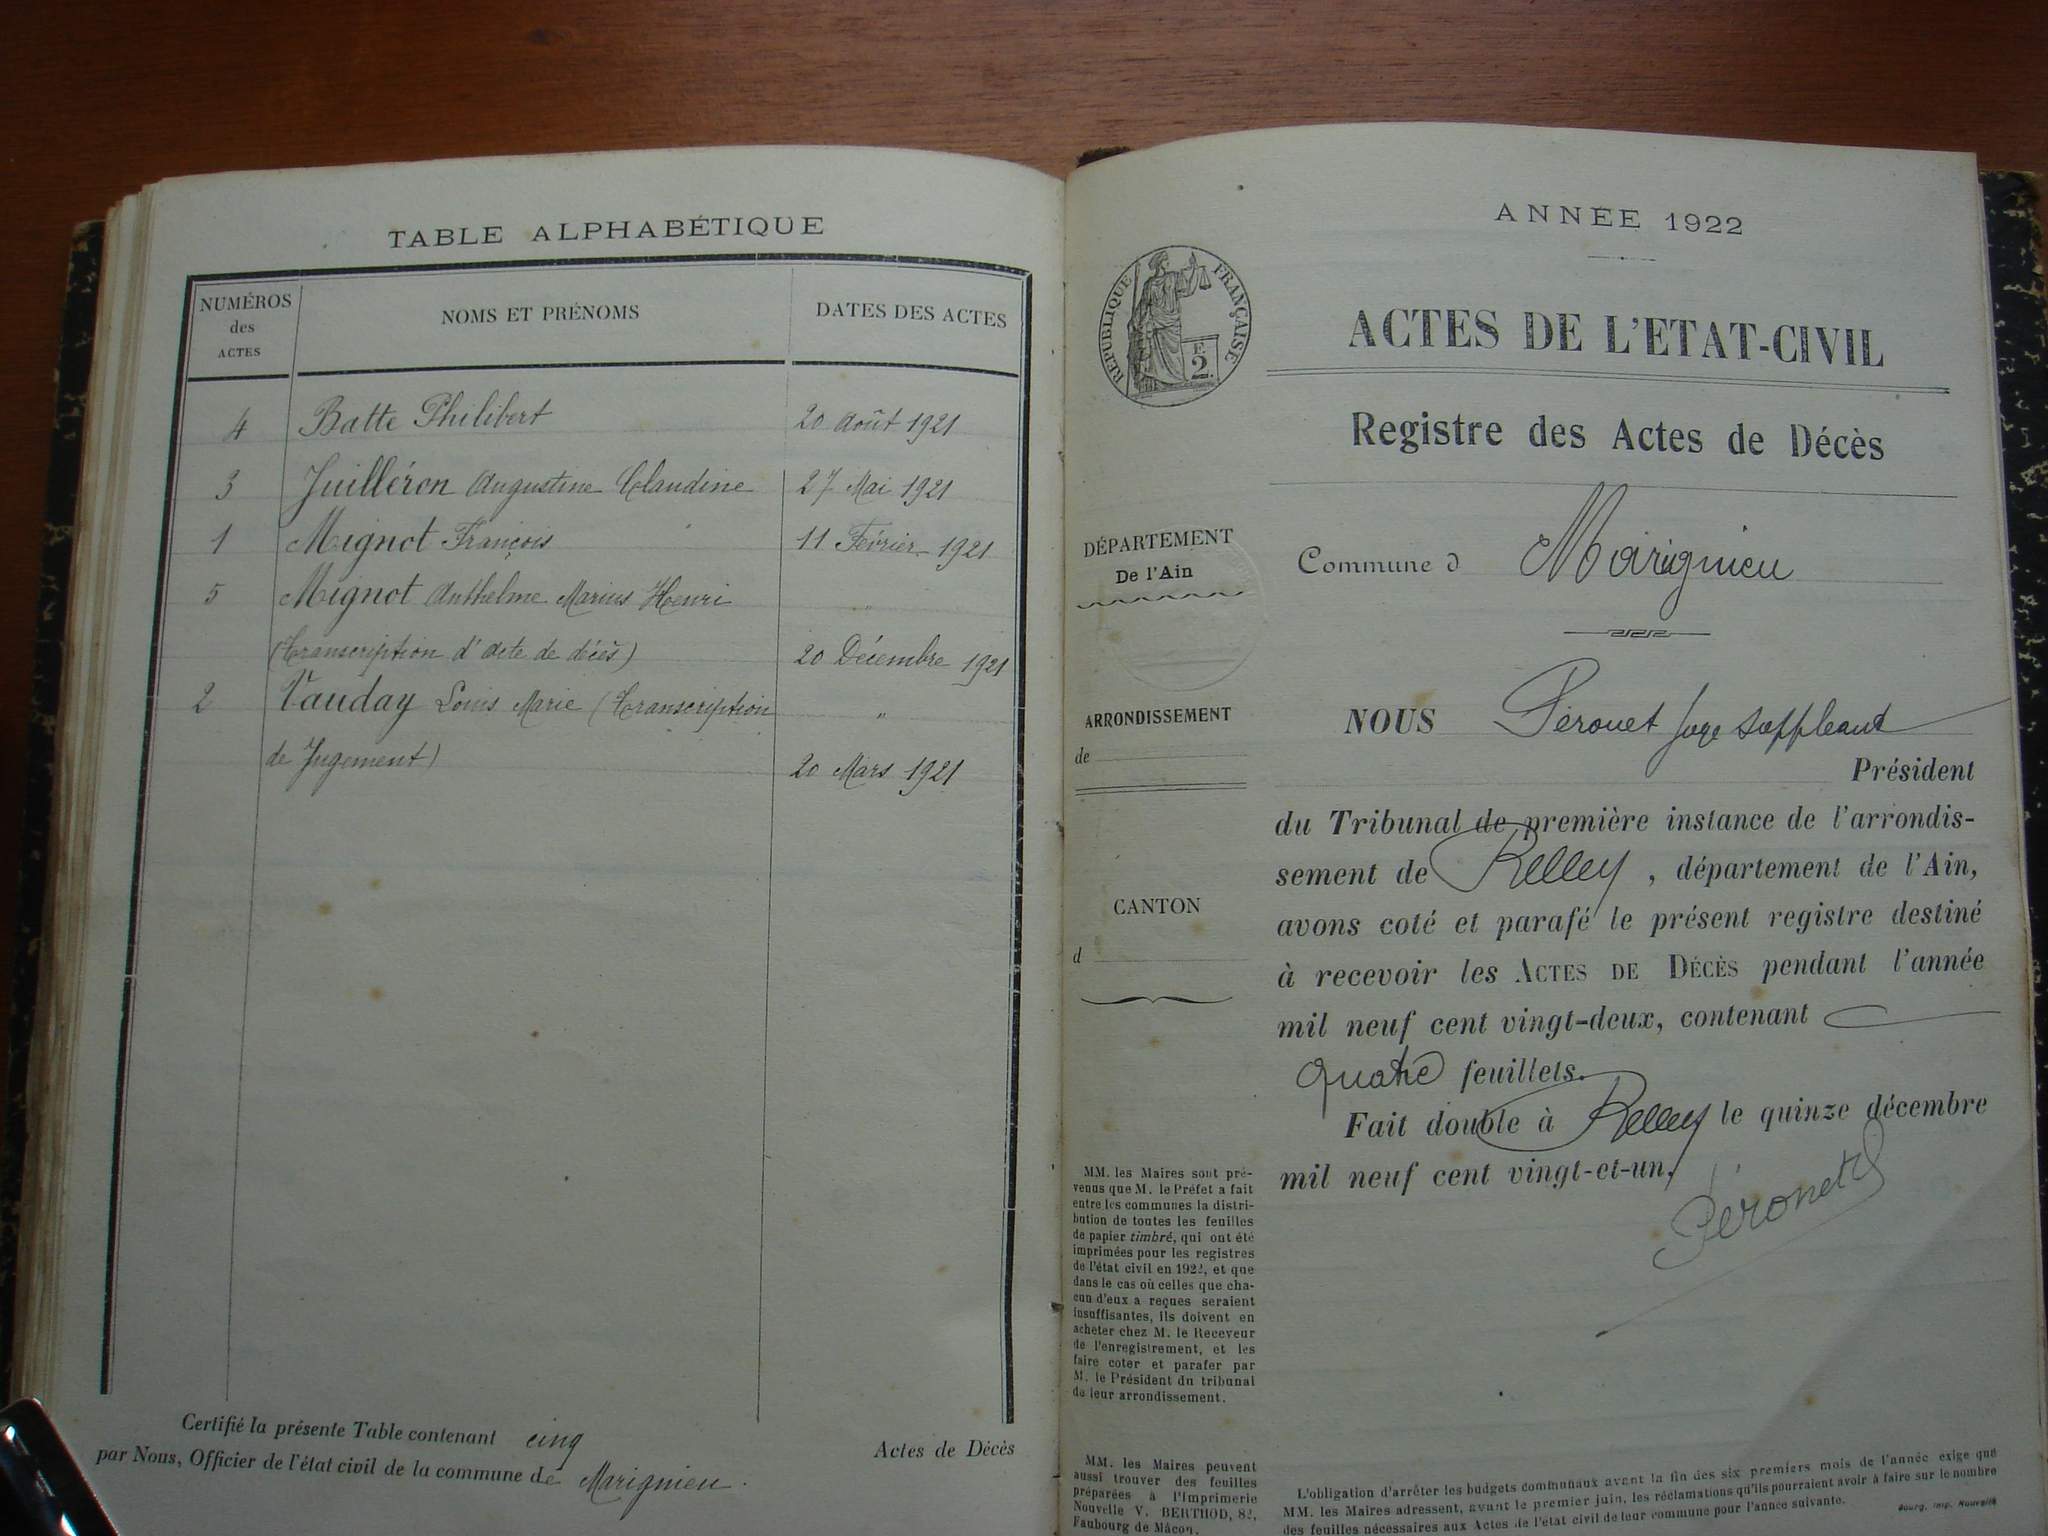 TABLE ALPHABÉTIQUE
NUMÉROS des ACTES NOMS ET PRÉNOMS DATES DES ACTES
4 Batte Philibert 20 Août 1921
3 Juilléron Augustine Claudine 27 Mai 1921
1 Mignot François 11 Février 1921
5 Mignot Anthelme Marius Henri "
(Transcription d'acte de décès) 20 Décembre 1921
2 Vauday Louis Marie (Transcription "
de Jugement) 20 Mars 1921
Certifié la présente Table contenant cinq Actes de Décès
par Nous, Officier de l'état civil de la commune de Marignieu.
ANNÉE 1922
RÉPUBLIQUE FRANÇAISE
2
ACTES DE L'ETAT-CIVIL
Registre des Actes de Décès
DÉPARTEMENT
De l'Ain
ARRONDISSEMENT
de
CANTON
d
MM. les Maires sont pré-
venus que M. le Préfet a fait
entre les communes la distri-
bution de toutes les feuilles
de papier timbré, qui ont été
imprimées pour les registres
de l'état civil en 1922, et que
dans le cas où celles que cha-
cun d'eux a reçues seraient
insuffisantes, ils doivent en
acheter chez M. le Receveur
de l'enregistrement, et les
faire coter et parafer par
M. le Président du tribunal
de leur arrondissement.
MM. les Maires peuvent
aussi trouver des feuilles
préparées à l'Imprimerie
Nouvelle V. BERTHOD, 82,
Faubourg de Mâcon.
Commune d Marignieu
NOUS Péronet Juge suppléant
Président
du Tribunal de première instance de l'arrondis-
sement de Belley, département de l'Ain,
avons coté et parafé le présent registre destiné
à recevoir les ACTES DE DÉCÈS pendant l'année
mil neuf cent vingt-deux, contenant
quatre feuillets.
Fait double à Belley le quinze décembre
mil neuf cent vingt-et-un,
Péronet
L'obligation d'arrêter les budgets communaux avant la fin des six premiers mois de l'année exige que
MM. les Maires adressent, avant le premier juin, les réclamations qu'ils pourraient avoir à faire sur le nombre
des feuilles nécessaires aux Actes de l'état civil de leur commune pour l'année suivante.
Bourg, Imp. Nouvelle